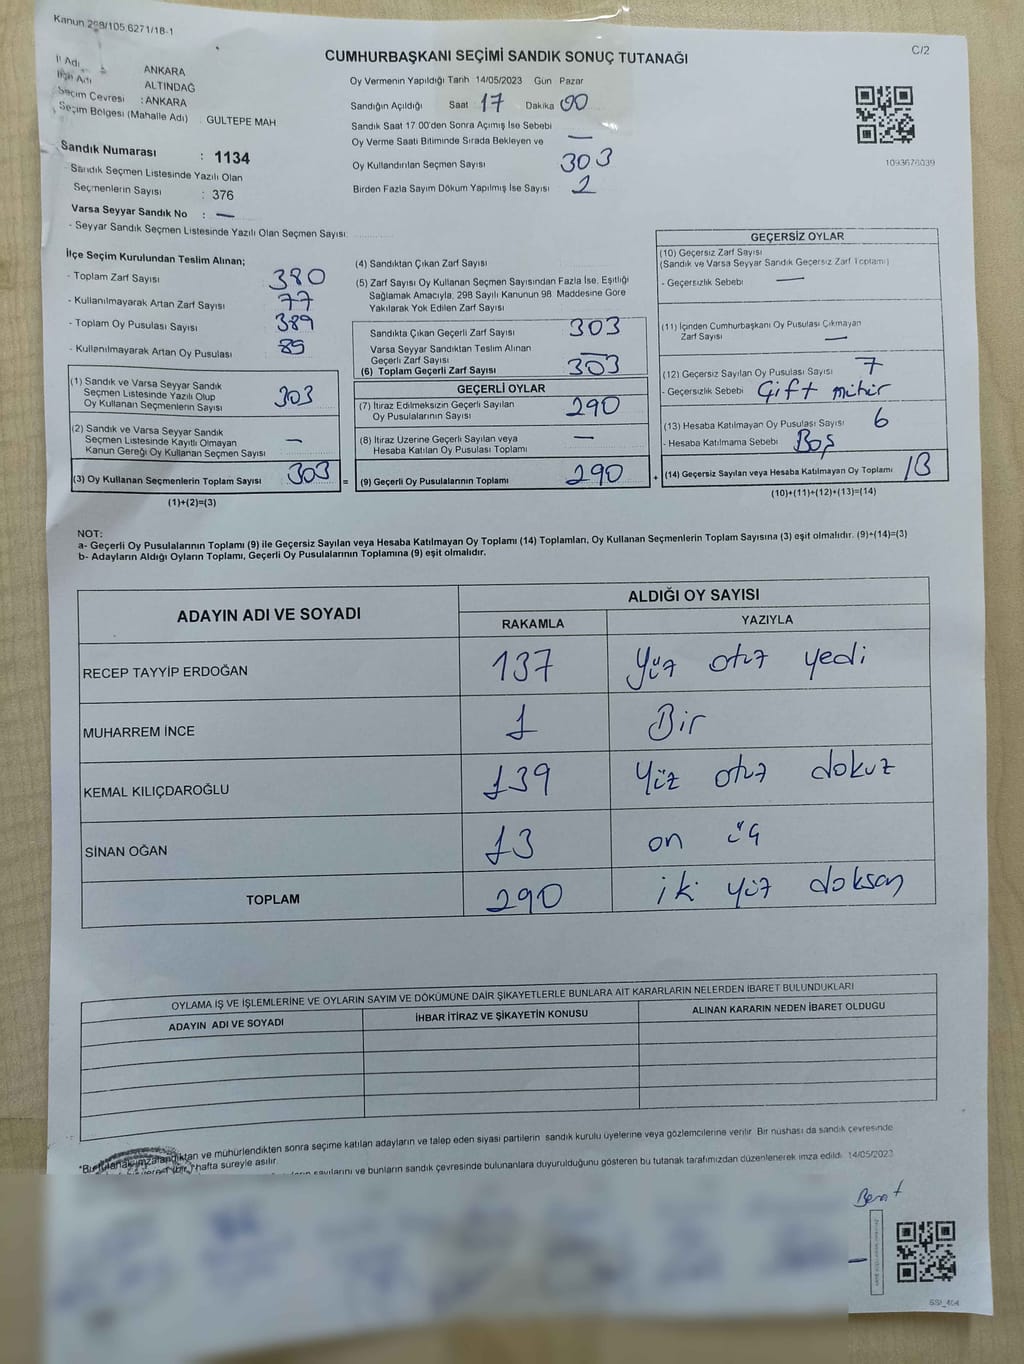 Kanun 298/105 6271/18-1
C/2
CUMHURBAŞKANI SEÇİMİ SANDIK SONUÇ TUTANAĞI
İl Adı ANKARA
İlçe Adı ALTINDAĞ
Seçim Çevresi : ANKARA
Seçim Bölgesi (Mahalle Adı) . GÜLTEPE MAH
Sandık Numarası : 1134
- Sandık Seçmen Listesinde Yazılı Olan
Seçmenlerin Sayısı : 376
Varsa Seyyar Sandık No : —
- Seyyar Sandık Seçmen Listesinde Yazılı Olan Seçmen Sayısı:
Oy Vermenin Yapıldığı Tarih 14/05/2023 Gün Pazar
Sandığın Açıldığı Saat 17 Dakika 00
Sandık Saat 17 00'den Sonra Açımış İse Sebebi
Oy Verme Saati Bitiminde Sırada Bekleyen ve —
Oy Kullandırılan Seçmen Sayısı 303
Birden Fazla Sayım Döküm Yapılmış İse Sayısı 2
1093676039
İlçe Seçim Kurulundan Teslim Alınan;
- Toplam Zarf Sayısı 380
- Kullanılmayarak Artan Zarf Sayısı 77
- Toplam Oy Pusulası Sayısı 389
- Kullanılmayarak Artan Oy Pusulası 89
(1) Sandık ve Varsa Seyyar Sandık
Seçmen Listesinde Yazılı Olup
Oy Kullanan Seçmenlerin Sayısı 303
(2) Sandık ve Varsa Seyyar Sandık
Seçmen Listesinde Kayıtlı Olmayan
Kanun Gereği Oy Kullanan Seçmen Sayısı —
(3) Oy Kullanan Seçmenlerin Toplam Sayısı 303 =
(1)+(2)=(3)
(4) Sandıktan Çıkan Zarf Sayısı
(5) Zarf Sayısı Oy Kullanan Seçmen Sayısından Fazla İse, Eşitliği
Sağlamak Amacıyla, 298 Sayılı Kanunun 98. Maddesine Göre
Yakılarak Yok Edilen Zarf Sayısı
Sandıkta Çıkan Geçerli Zarf Sayısı 303
Varsa Seyyar Sandıktan Teslim Alınan
Geçerli Zarf Sayısı —
(6) Toplam Geçerli Zarf Sayısı 303
GEÇERLİ OYLAR
(7) İtiraz Edilmeksizin Geçerli Sayılan
Oy Pusulalarının Sayısı 290
(8) İtiraz Üzerine Geçerli Sayılan veya
Hesaba Katılan Oy Pusulası Toplamı —
(9) Geçerli Oy Pusulalarının Toplamı 290 +
GEÇERSİZ OYLAR
(10) Geçersiz Zarf Sayısı
(Sandık ve Varsa Seyyar Sandık Geçersiz Zarf Toplamı)
- Geçersizlik Sebebi —
(11) İçinden Cumhurbaşkanı Oy Pusulası Çıkmayan
Zarf Sayısı —
(12) Geçersiz Sayılan Oy Pusulası Sayısı 7
- Geçersizlik Sebebi Çift mühür
(13) Hesaba Katılmayan Oy Pusulası Sayısı 6
- Hesaba Katılmama Sebebi Boş
(14) Geçersiz Sayılan veya Hesaba Katılmayan Oy Toplamı 13
(10)+(11)+(12)+(13)=(14)
NOT:
a- Geçerli Oy Pusulalarının Toplamı (9) ile Geçersiz Sayılan veya Hesaba Katılmayan Oy Toplamı (14) Toplamları, Oy Kullanan Seçmenlerin Toplam Sayısına (3) eşit olmalıdır. (9)+(14)=(3)
b- Adayların Aldığı Oyların Toplamı, Geçerli Oy Pusulalarının Toplamına (9) eşit olmalıdır.
ADAYIN ADI VE SOYADI ALDIĞI OY SAYISI
RAKAMLA YAZIYLA
RECEP TAYYİP ERDOĞAN 137 Yüz otuz yedi
MUHARREM İNCE 1 Bir
KEMAL KILIÇDAROĞLU 139 Yüz otuz dokuz
SİNAN OĞAN 13 on üç
TOPLAM 290 iki yüz doksan
OYLAMA İŞ VE İŞLEMLERİNE VE OYLARIN SAYIM VE DÖKÜMÜNE DAİR ŞİKAYETLERLE BUNLARA AİT KARARLARIN NELERDEN İBARET BULUNDUKLARI
ADAYIN ADI VE SOYADI İHBAR İTİRAZ VE ŞİKAYETİN KONUSU ALINAN KARARIN NEDEN İBARET OLDUĞU
*Bu tutanak imzalandıktan ve mühürlendikten sonra seçime katılan adayların ve talep eden siyasi partilerin sandık kurulu üyelerine veya gözlemcilerine verilir. Bir nüshası da sandık çevresinde
hafta süreyle asılır.
sayılarını ve bunların sandık çevresinde bulunanlara duyurulduğunu gösteren bu tutanak tarafımızdan düzenlenerek imza edildi. 14/05/2023
Berat